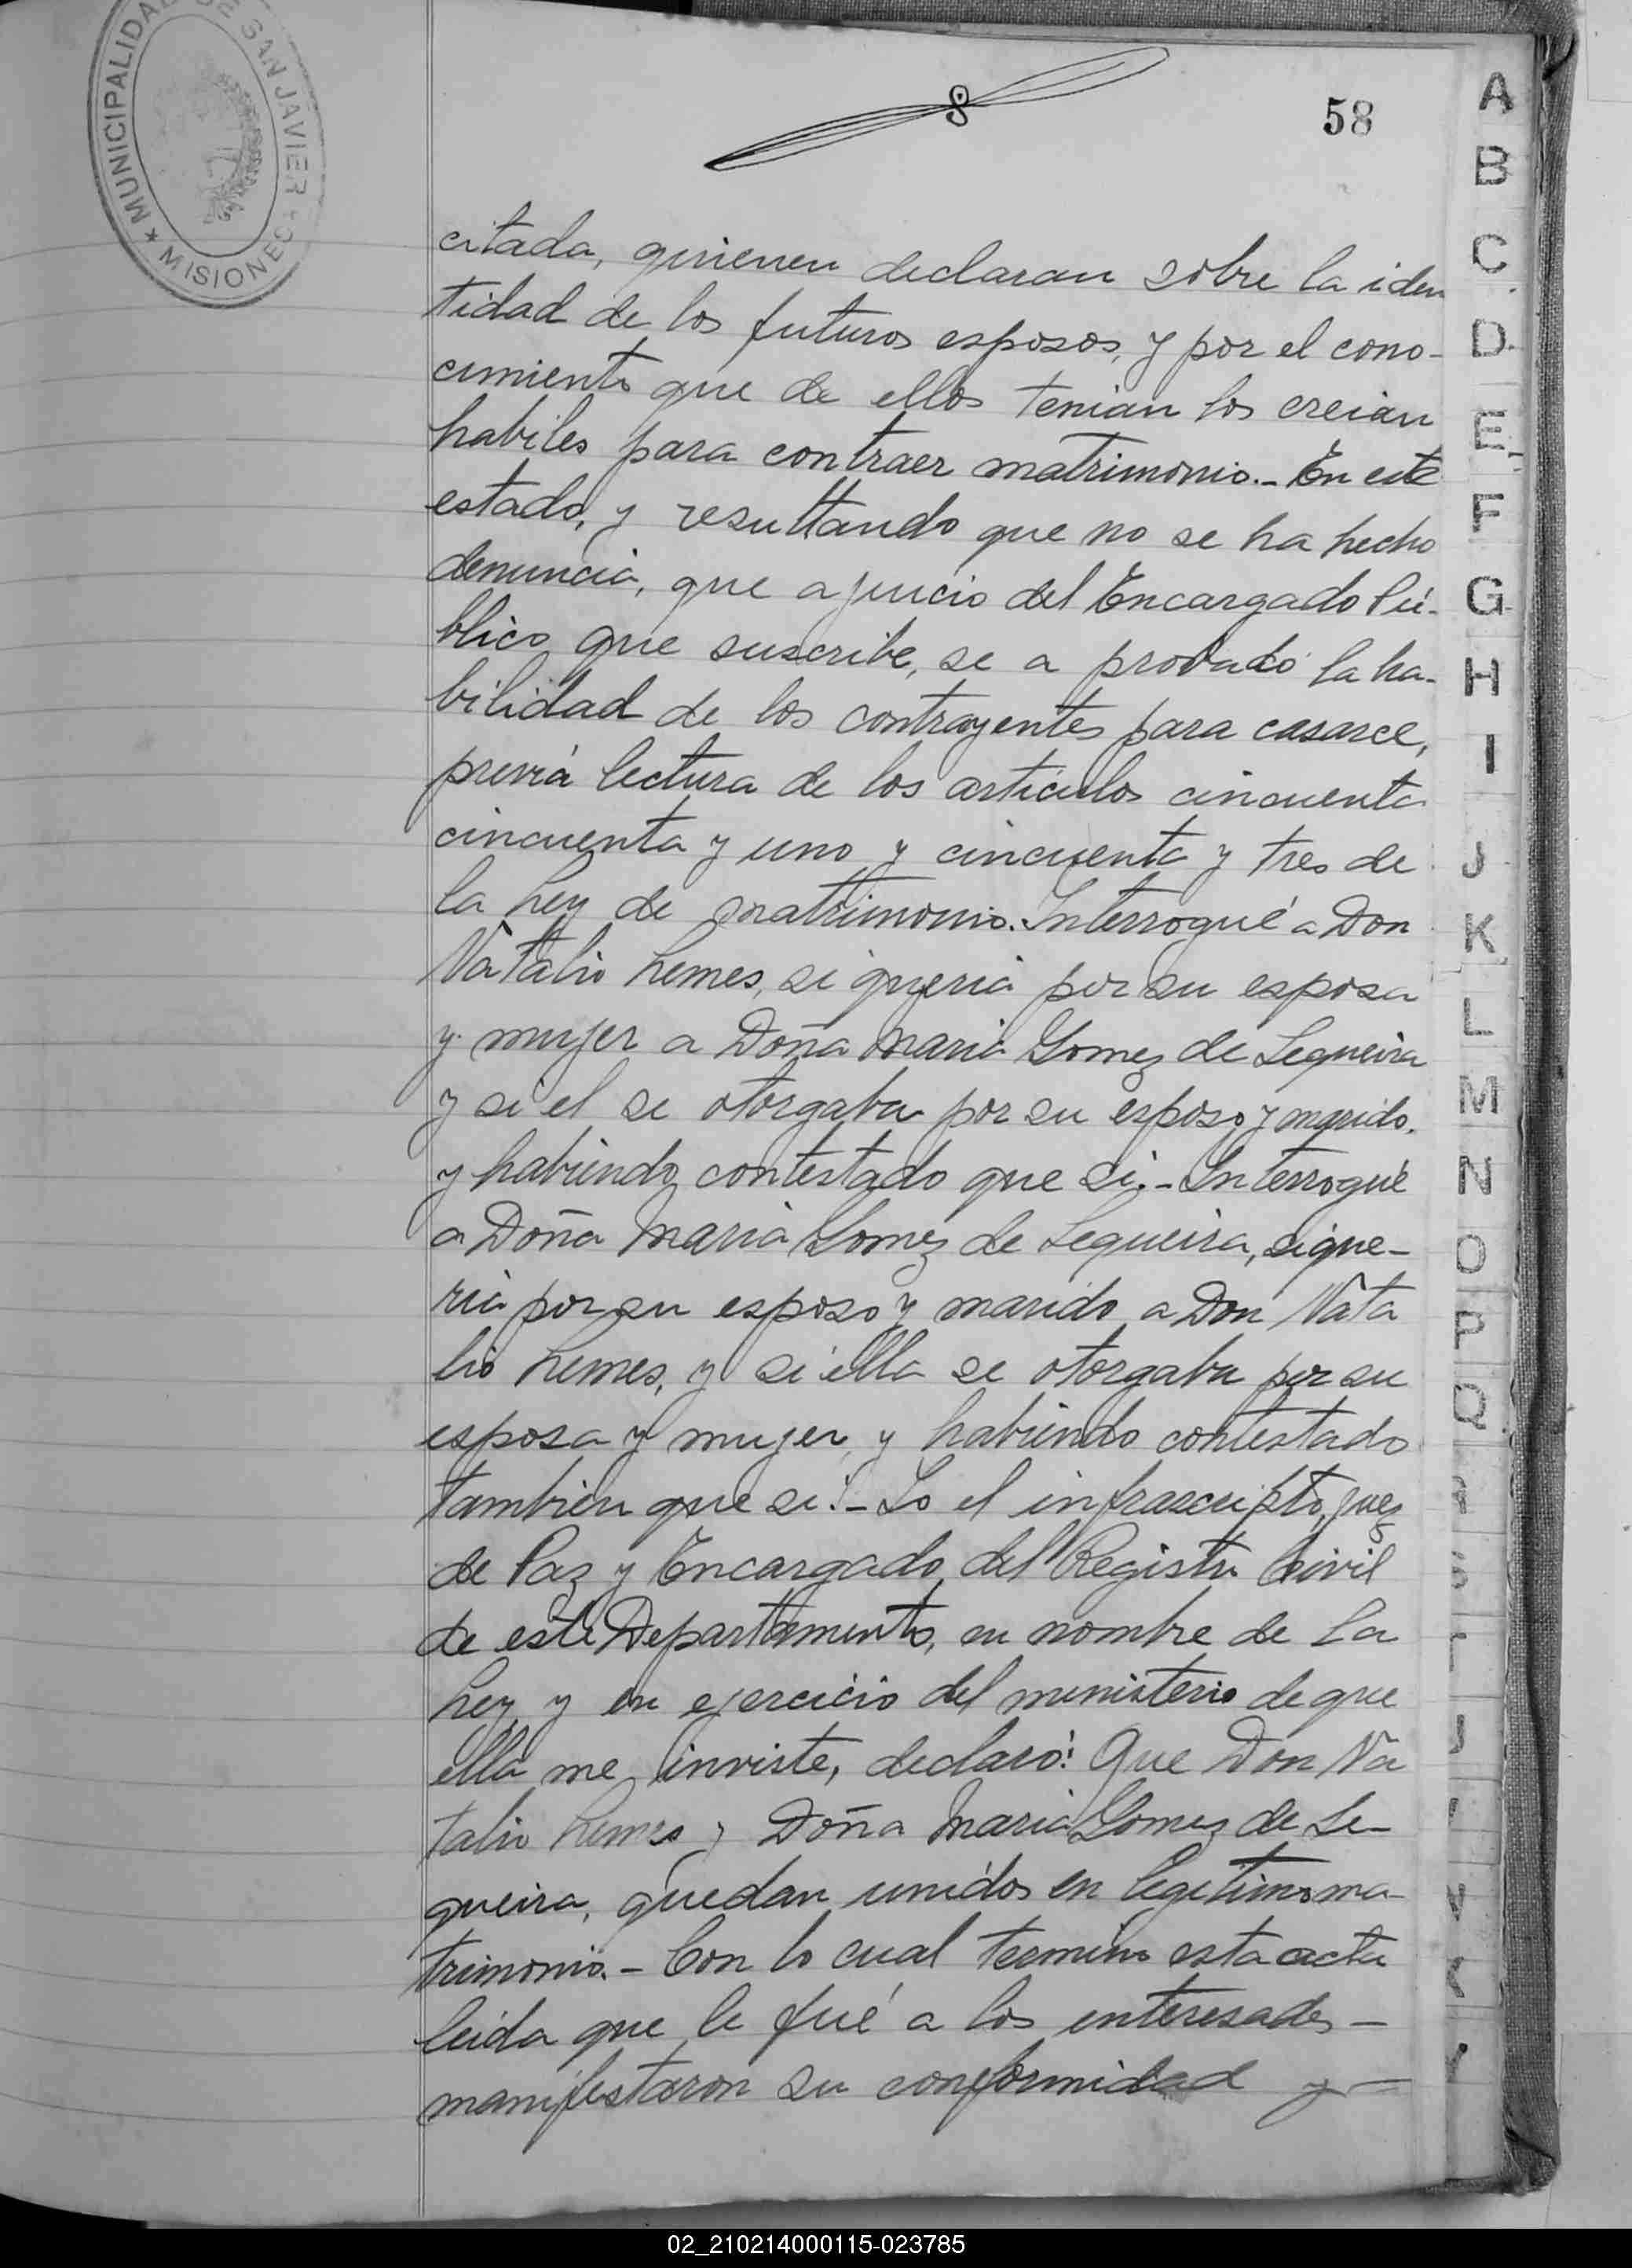 MUNICIPALIDAD DE SAN JAVIER
* MISIONES
8
58
citada, quienen declaran sobre la iden
tidad de los futuros esposos, y por el cono-
cimiento que de ellos tenian los creian
habiles para contraer matrimonio.- En este
estado, y resultando que no se ha hecho
denuncia, que a juicio del Encargado Pú-
blico que suscribe, se a probado la ha-
bilidad de los contrayentes para casarce,
previa lectura de los artículos cincuenta
cincuenta y uno y cincuenta y tres de
la Ley de matrimonio. Interrogué a Don
Natalio Lemes, si queria por su esposa
y mujer a Doña Maria Gomez de Sequeira
y si el se otorgaba por su esposo y marido.
y habiendo contestado que si.- Interrogué
a Doña Maria Gomez de Sequeira, si que-
ria por su esposo y marido a Don Nata
lio Lemes, y si ella se otorgaba por su
esposa y mujer, y habiendo contestado
tambien que si.- Yo el infrascripto, juez
de Paz y Encargado del Registro Civil
de este Departamento, en nombre de la
Ley y en ejercicio del ministerio de que
ella me inviste, declaro: Que Don Na
talio Lemes y Doña Maria Gomez de Se-
queira, quedan unidos en legitimo ma-
trimonio.- Con lo cual termino esta acta
leida que le fué a los interesados -
manifestaron su conformidad y -
A
B
C
D
E
F
G
H
I
J
K
L
M
N
O
P
Q
02_210214000115-023785